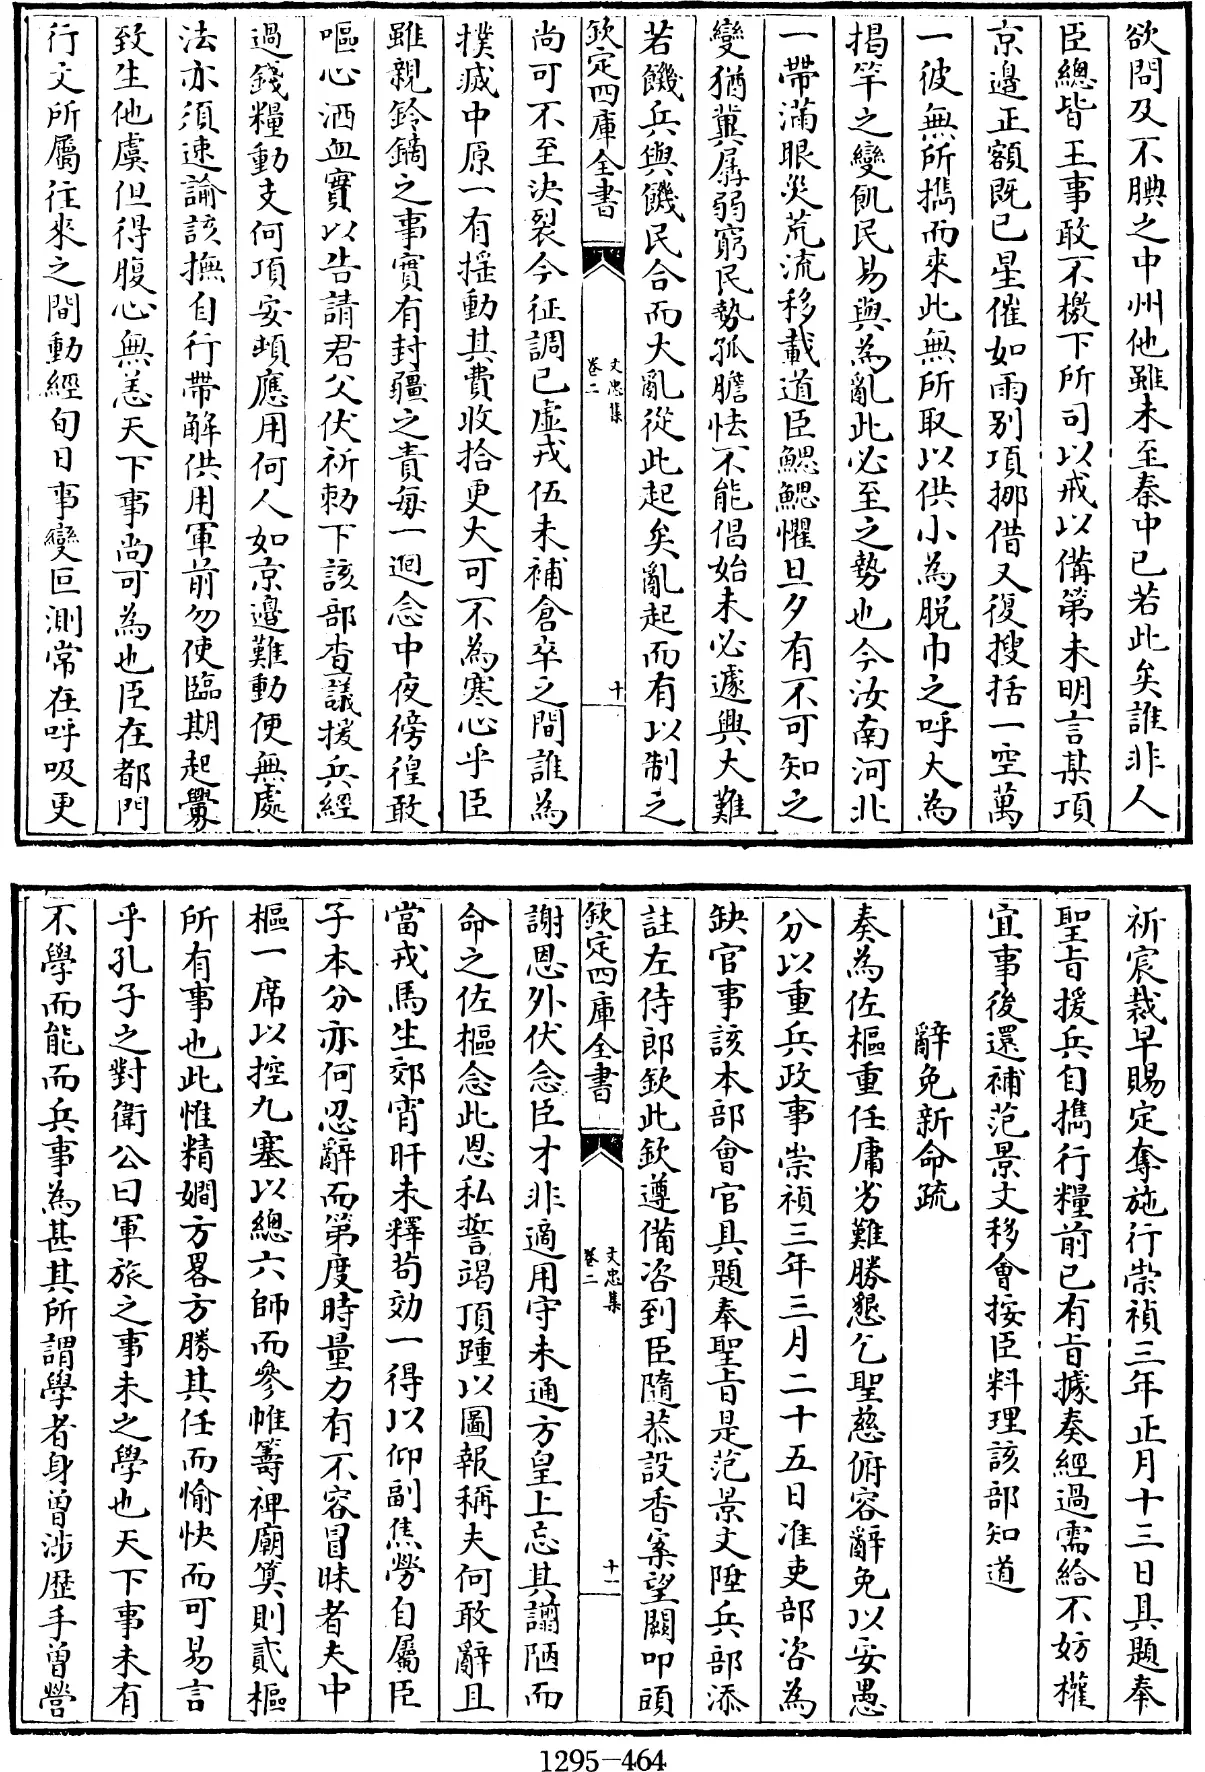 欲問及不腆之中州他雖未至秦中已若此矣誰非人
臣總皆王事敢不檄下所司以戒以備第未明言某項
京邊正額既已星催如雨别項挪借又復搜括一空萬
一彼無所攜而來此無所取以供小為脱巾之呼大為
揭竿之變飢民易與為亂此必至之勢也今汝南河北
一帶滿眼災荒流移載道臣鰓鰓懼旦夕有不可知之
變猶冀孱弱窮民勢孤膽怯不能倡始未必遽興大難
若饑兵與饑民合而大亂從此起矣亂起而有以制之
欽定四庫全書
文忠集
卷二
十
尚可不至決裂今征調已虚戎伍未補倉卒之間誰為
撲滅中原一有摇動其費收拾更大可不為寒心乎臣
雖親鈴鏑之事實有封疆之責每一迴念中夜徬徨敢
嘔心洒血實以告請君父伏祈勅下該部查議援兵經
過錢糧動支何項安頓應用何人如京邊難動便無處
法亦須速諭該撫自行帶解供用軍前勿使臨期起釁
致生他虞但得腹心無恙天下事尚可為也臣在都門
行文所屬往來之間動經旬日事變叵測常在呼吸更
祈宸裁早賜定奪施行崇禎三年正月十三日具題奉
聖旨援兵自攜行糧前已有旨據奏經過需給不妨權
宜事後還補范景文移會按臣料理該部知道
辭免新命疏
奏為佐樞重任庸劣難勝懇乞聖慈俯容辭免以安愚
分以重兵政事崇禎三年三月二十五日准吏部咨為
缺官事該本部會官具題奉聖旨是范景文陞兵部添
註左侍郎欽此欽遵備咨到臣隨恭設香案望闕叩頭
欽定四庫全書
文忠集
卷二
十一
謝恩外伏念臣才非適用守未通方皇上忘其謭陋而
命之佐樞念此恩私誓竭頂踵以圖報稱夫何敢辭且
當戎馬生郊宵旰未釋苟効一得以仰副焦勞自屬臣
子本分亦何忍辭而第度時量力有不容冒昧者夫中
樞一席以控九塞以總六師而參帷籌裨廟筭則貳樞
所有事也此惟精嫺方畧方勝其任而愉快而可易言
乎孔子之對衛公曰軍旅之事未之學也天下事未有
不學而能而兵事為甚其所謂學者身曾涉歴手曾營
1295-464